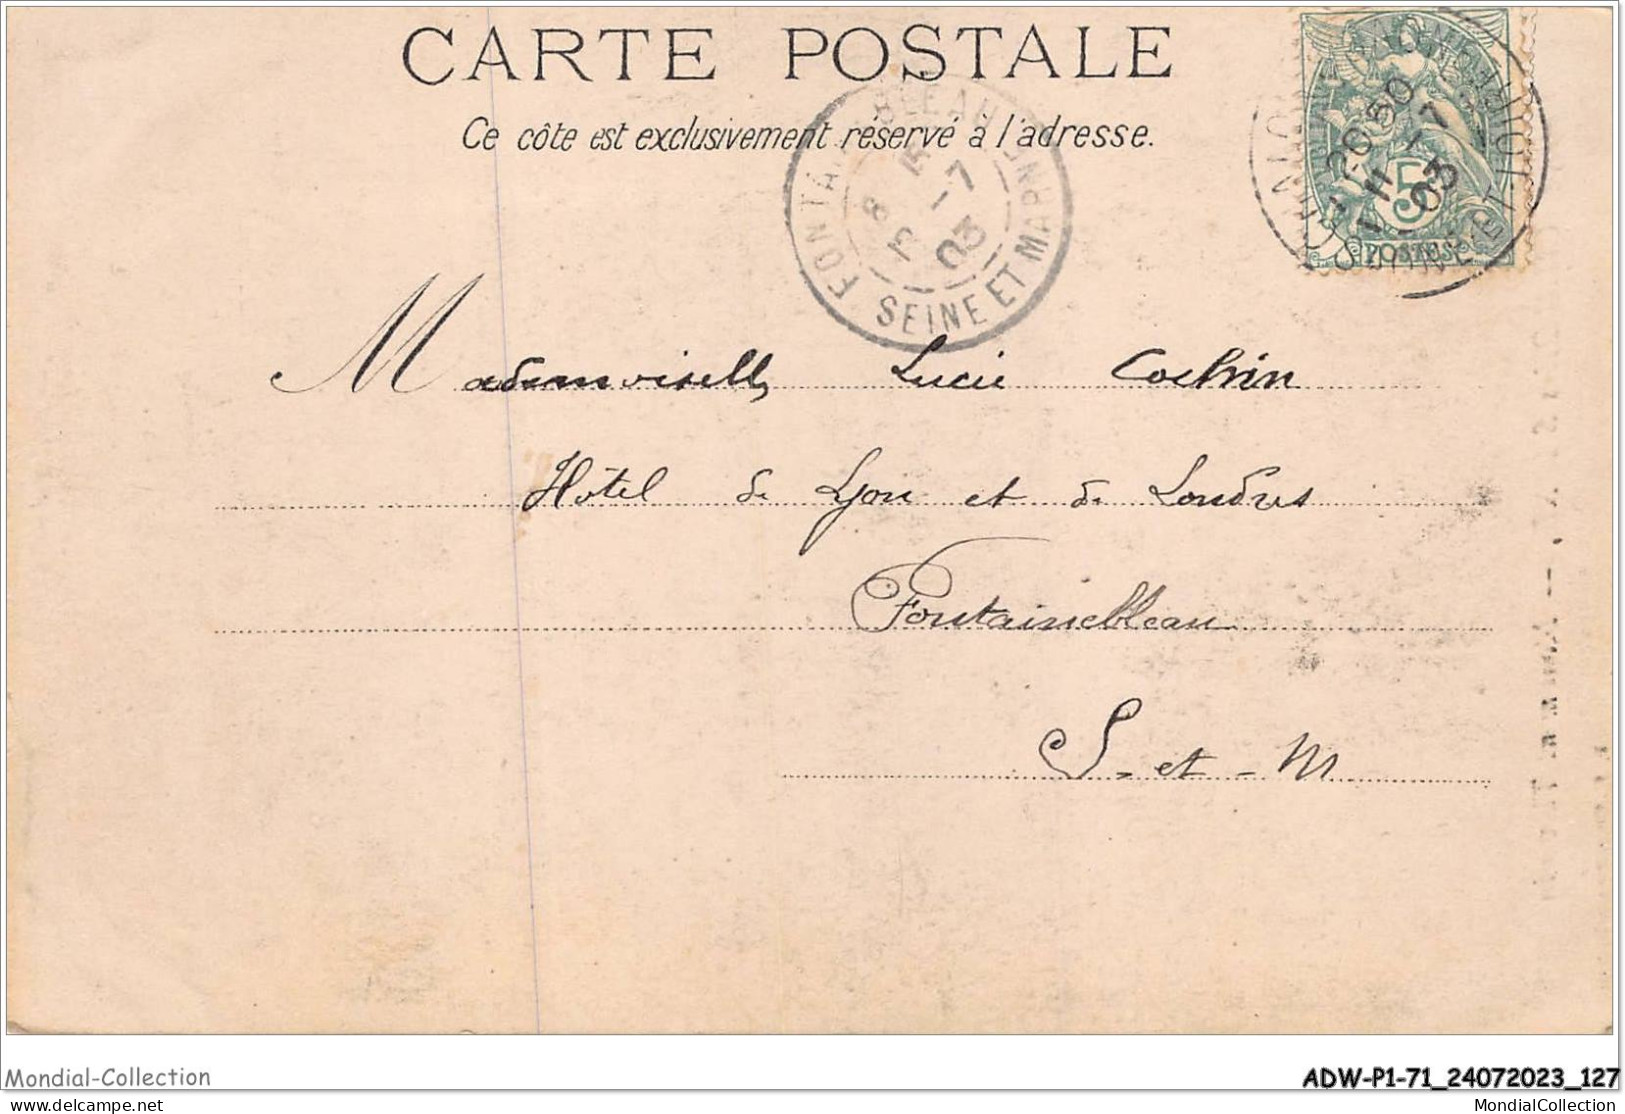 CARTE POSTALE
Ce côte est exclusivement réservé à l'adresse.
FONTAINEBLEAU
15 -7 03
SEINE ET MARNE
5
POSTES
Mademoiselle Lucie Cochin
Hôtel de Lyon et de Londres
Fontainebleau
S- et - M
Mondial-Collection
ADW-P1-71_24072023_127
MondialCollection
MondialCollection